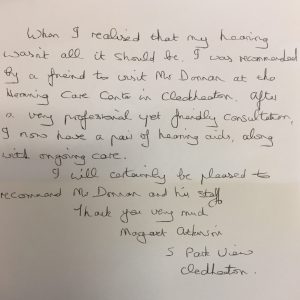 When I realised that my hearing
wasn't all it should be, I was recommended
by a friend to visit Mr Donnan at the
Hearing Care Centre in Cleckheaton. After
a very professional yet friendly consultation,
I now have a pair of hearing aids, along
with ongoing care.
I will certainly be pleased to
recommend Mr Donnan and his staff
Thank you very much
Margaret Atkinson
5 Park View
Cleckheaton.